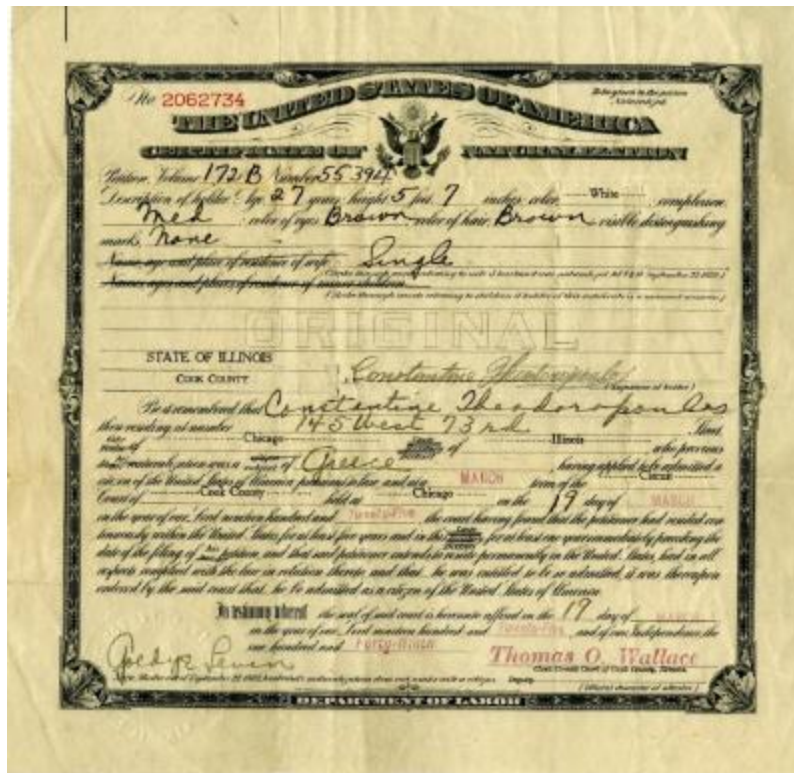 No. 2062734
To be given to the person
THE UNITED STATES OF AMERICA
CERTIFICATE OF NATURALIZATION
Petition, Volume 172 B Number 55394
Description of holder: Age 27 years; height 5 feet 7 inches; color, White; complexion,
Med; color of eyes, Brown; color of hair, Brown; visible distinguishing
marks, None
Name, age and place of residence of wife Single
Names, ages and places of residence of minor children
ORIGINAL
STATE OF ILLINOIS
COOK COUNTY
Constantine
(Signature of holder)
Be it remembered that Constantine Theodoropoulos
then residing at number 145 West 73rd Street,
of Chicago of Illinois who previous
to naturalization was a of Greece, having applied to be admitted a
citizen of the United States of America pursuant to law and at a MARCH term of the Circuit
Court of Cook County held at Chicago on the 19 day of MARCH
in the year of our Lord nineteen hundred and Twenty-Five the court having found that the petitioner had resided con
tinuously within the United States for at least five years and in this for at least one year immediately preceding the
date of the filing of his petition, and that said petitioner intends to reside permanently in the United States, had in all
respects complied with the law in relation thereto and that he was entitled to be so admitted, it was thereupon
ordered by the said court that he be admitted as a citizen of the United States of America
In testimony whereof the seal of said court is hereunto affixed on the 19 day of MARCH
in the year of our Lord nineteen hundred and Twenty-Five and of our Independence the
one hundred and Forty-Ninth
Thomas O. Wallace
Clerk Circuit Court of Cook County, Illinois.
Deputy
(Official character of attestor.)
DEPARTMENT OF LABOR